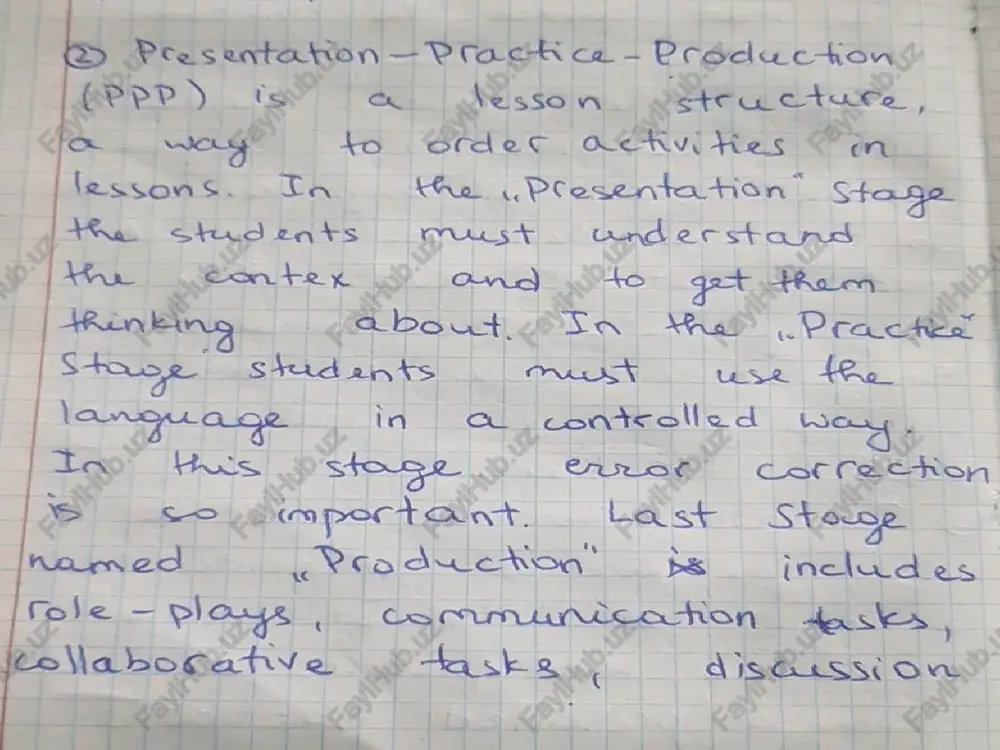 ② Presentation - Practice - Production
(PPP) is a lesson structure,
a way to order activities in
lessons. In the „Presentation“ Stage
the students must understand
the contex and to get them
thinking about. In the „Practice“
Stage students must use the
language in a controlled way.
In this stage error correction
is so important. Last Stage
named „Production“ is includes
role-plays, communication tasks,
collaborative tasks, discussion
FayllHub.uz